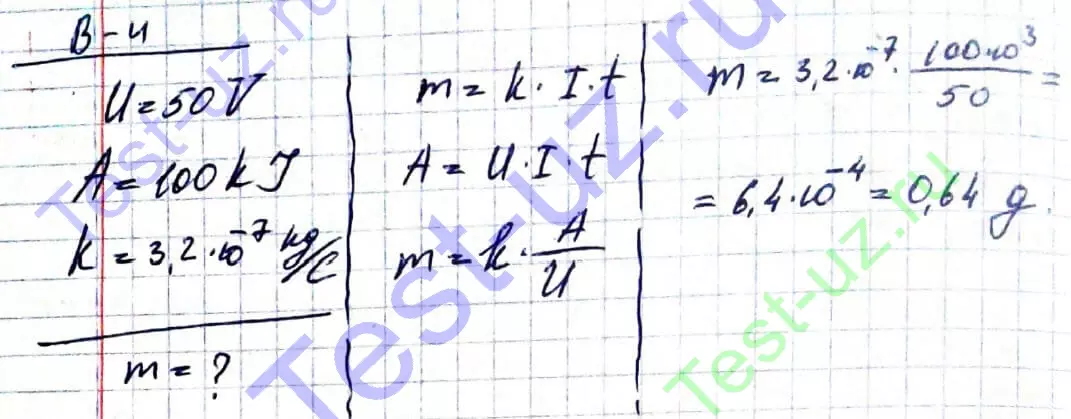 B-4
U = 50 V
A = 100 kJ
k = 3,2·10⁻⁷ kg/C
m = ?
m = k · I · t
A = U · I · t
m = k · A/U
m = 3,2·10⁻⁷ · 100·10³/50 =
= 6,4·10⁻⁴ = 0,64 g.
Test-uz.ru
Test-uz.ru
Test-uz.ru